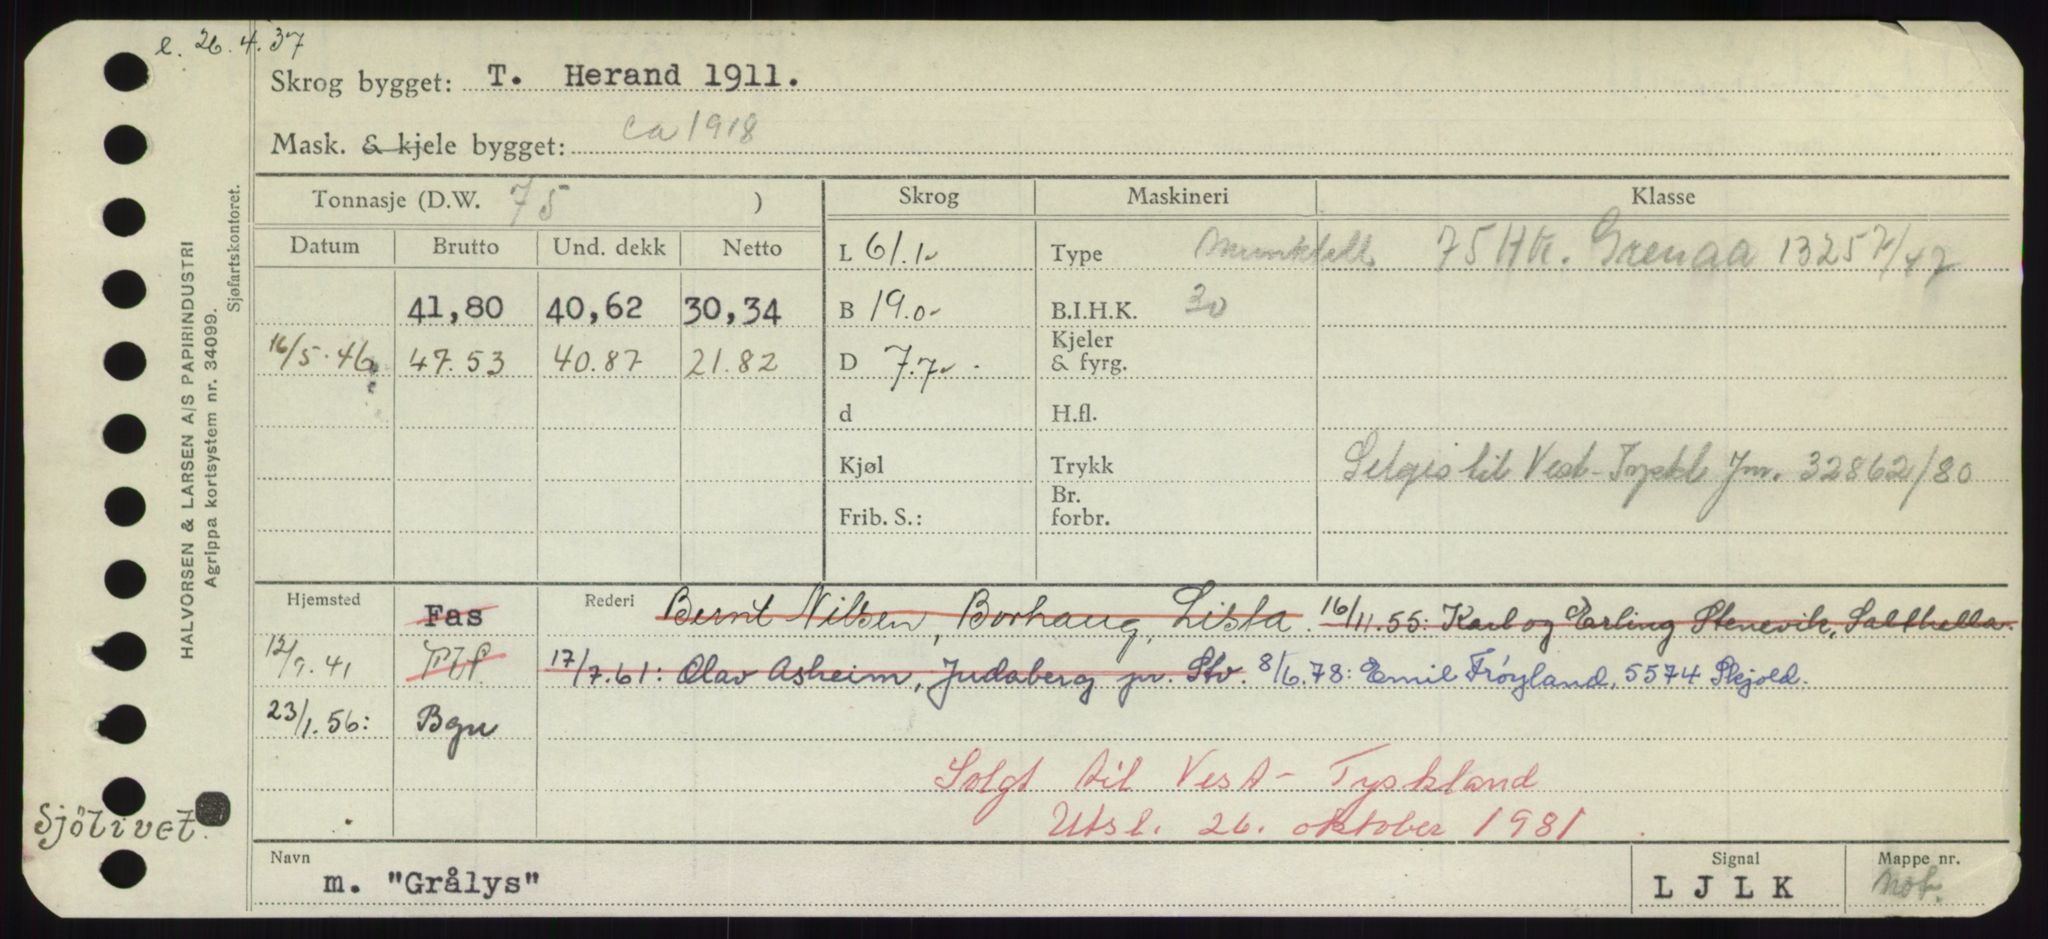 e. 26.4.37
Skrog bygget: T. Herand 1911.
Mask. & kjele bygget: ca 1918
Tonnasje (D.W. 75 )
Skrog
Maskineri
Klasse
Datum
Brutto
Und. dekk
Netto
L 61.1
Type Munktell. 75 Hk. Grenaa 13257/47
41,80 40,62 30,34
B 19.0
B.I.H.K. 30
16/5.46 47.53 40.87 21.82
D 7.7
Kjeler & fyrg.
d
H.fl.
Kjøl
Trykk
Selges til Vest-Tyskl Jnr. 32862/80
Frib. S.:
Br. forbr.
Hjemsted
Fas
Rederi
Bernt Nilsen, Borhaug, Lista. 16/11.55: Karl og Erling Stenevik, Salthella.
12/7.41
17/7.61: Olav Asheim, Judaberg pr. Stv. 8/6.78: Emil Frøyland, 5574 Skjold.
23/1.56: Bgn
Solgt til Vest-Tyskland
Utsl. 26. oktober 1981
Sjölivet.
Navn
m. "Grålys"
Signal
L J L K
Mappe nr.
Not.
HALVORSEN & LARSEN A/S PAPIRINDUSTRI
Agrippa kortsystem nr. 34099.
Sjøfartskontoret.